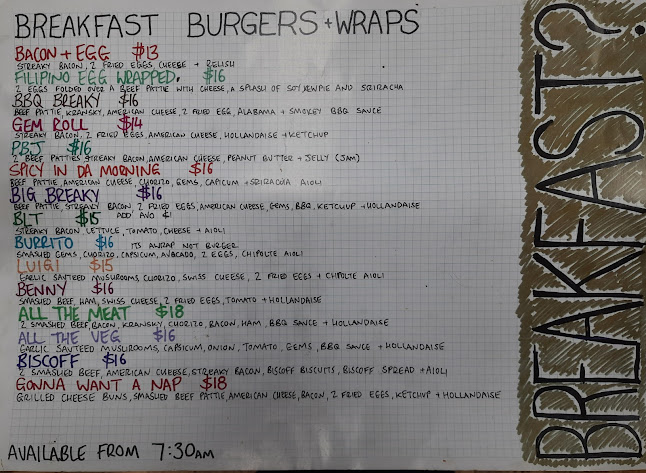 BREAKFAST BURGERS + WRAPS
BACON + EGG $13
STREAKY BACON, 2 FRIED EGGS CHEESE + RELISH
FILIPINO EGG WRAPPED. $16
2 EGGS FOLDED OVER A BEEF PATTIE WITH CHEESE, A SPLASH OF SOY, KEWPIE AND SRIRACHA
BBQ BREAKY $16
BEEF PATTIE, KRANSKY, AMERICAN CHEESE, 2 FRIED EGG, ALABAMA + SMOKEY BBQ SAUCE
GEM ROLL $14
STREAKY BACON, 2 FRIED EGGS, AMERICAN CHEESE, HOLLANDAISE + KETCHUP
PBJ $16
2 BEEF PATTIES STREAKY BACON, AMERICAN CHEESE, PEANUT BUTTER + JELLY (JAM)
SPICY IN DA MORNING $16
BEEF PATTIE, AMERICAN CHEESE, CHORIZO, GEMS, CAPICUM + SRIRACHA AIOLI
BIG BREAKY $16
BEEF PATTIE, STREAKY BACON 2 FRIED EGGS, AMERICAN CHEESE, GEMS, BBQ, KETCHUP + HOLLANDAISE
BLT $15 ADD AVO $1
STREAKY BACON, LETTUCE, TOMATO, CHEESE + AIOLI
BURRITO $16 ITS A WRAP NOT BURGER
SMASHED GEMS, CHORIZO, CAPSICUM, AVOCADO, 2 EGGS, CHIPOLTE AIOLI
LUIGI $15
GARLIC SAUTEED MUSHROOMS, CHORIZO, SWISS CHEESE, 2 FRIED EGGS + CHIPOLTE AIOLI
BENNY $16
SMASHED BEEF, HAM, SWISS CHEESE, 2 FRIED EGGS, TOMATO + HOLLANDAISE
ALL THE MEAT $18
2 SMASHED BEEF, BACON, KRANSKY, CHORIZO, BACON, HAM, BBQ SAUCE + HOLLANDAISE
ALL THE VEG $16
GARLIC SAUTEED MUSHROOMS, CAPSICUM, ONION, TOMATO, GEMS, BBQ SAUCE + HOLLANDAISE
BISCOFF $16
2 SMASHED BEEF, AMERICAN CHEESE, STREAKY BACON, BISCOFF BISCUITS, BISCOFF SPREAD + AIOLI
GONNA WANT A NAP $18
GRILLED CHEESE BUNS, SMASHED BEEF PATTIE, AMERICAN CHEESE, BACON, 2 FRIED EGGS, KETCHUP + HOLLANDAISE
AVAILABLE FROM 7:30AM
BREAKFAST?